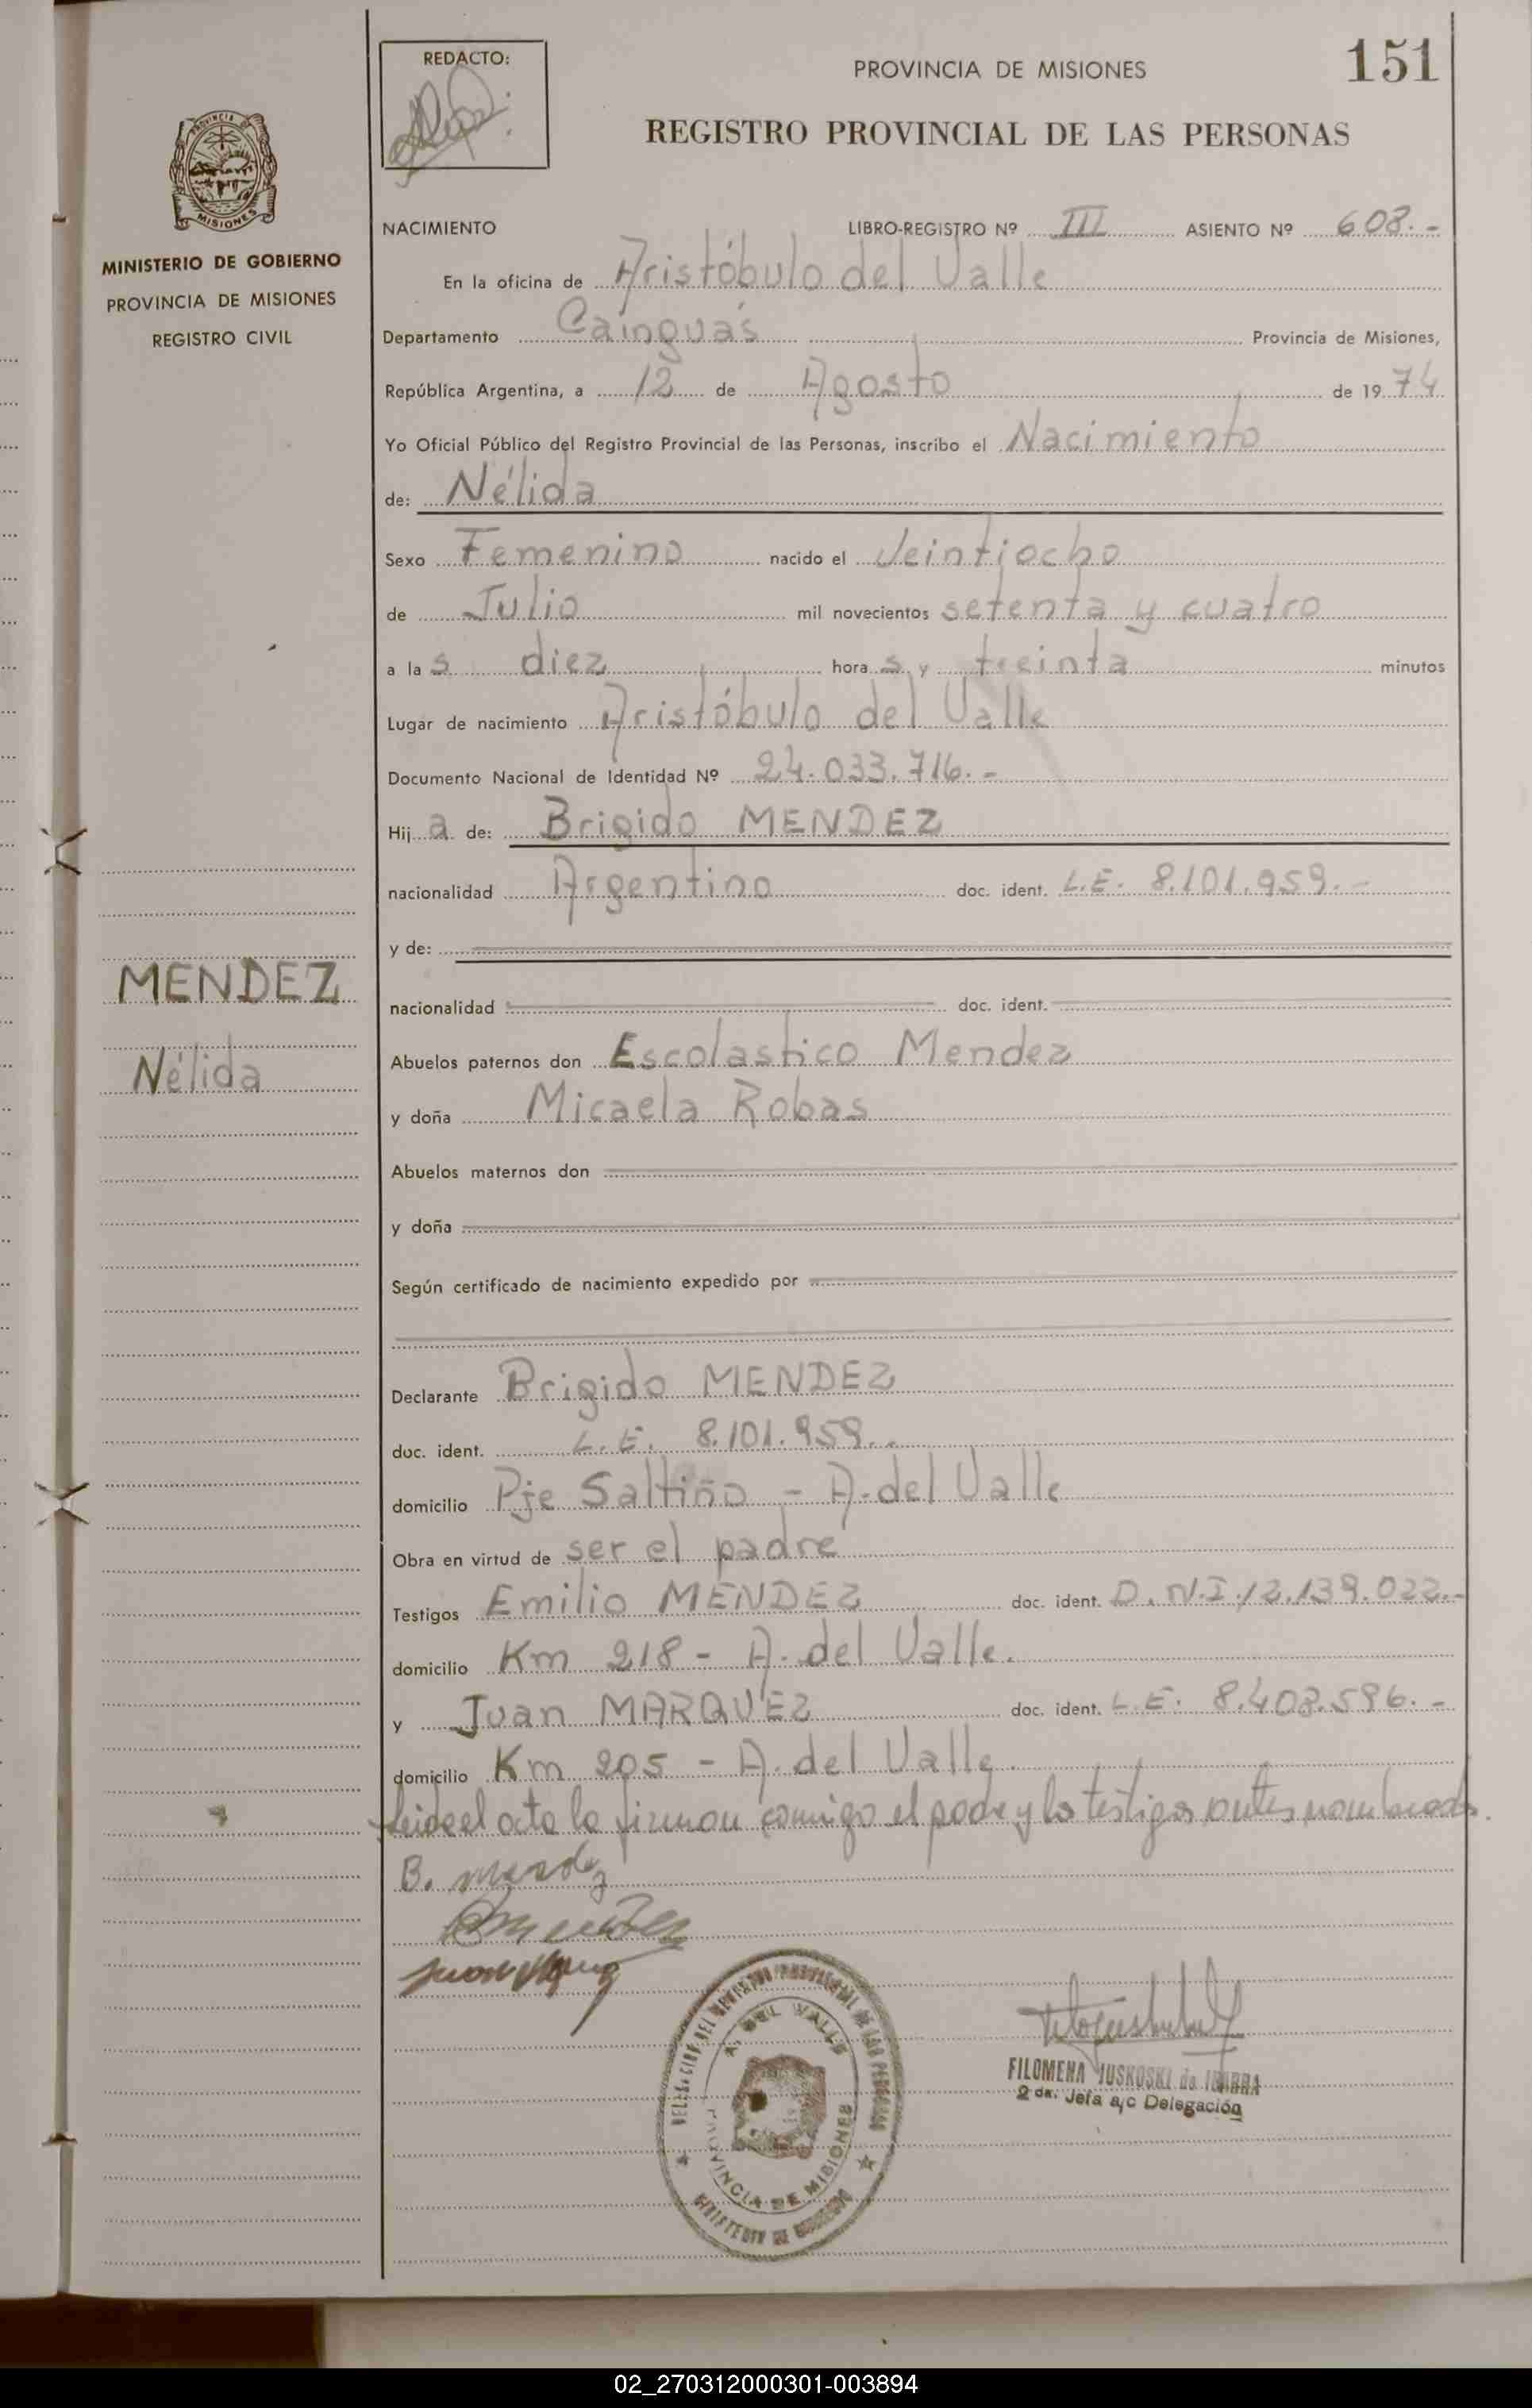 REDACTO:
PROVINCIA DE MISIONES
151
REGISTRO PROVINCIAL DE LAS PERSONAS
PROVINCIA DE
MISIONES
MINISTERIO DE GOBIERNO
PROVINCIA DE MISIONES
REGISTRO CIVIL
NACIMIENTO LIBRO-REGISTRO Nº III ASIENTO Nº 608.-
En la oficina de Aristóbulo del Valle
Departamento Cainguás Provincia de Misiones,
República Argentina, a 12 de Agosto de 1974
Yo Oficial Público del Registro Provincial de las Personas, inscribo el Nacimiento
de: Nélida
Sexo Femenino nacido el Veintiocho
de Julio mil novecientos setenta y cuatro
a las diez horas y treinta minutos
Lugar de nacimiento Aristóbulo del Valle
Documento Nacional de Identidad Nº 24.033.716.-
Hija de: Brigido MENDEZ
nacionalidad Argentino doc. ident. L.E. 8.101.959.-
y de:
MENDEZ
Nélida
nacionalidad doc. ident.
Abuelos paternos don Escolastico Mendez
y doña Micaela Robas
Abuelos maternos don
y doña
Según certificado de nacimiento expedido por
Declarante Brigido MENDEZ
doc. ident. L.E. 8.101.959.-
domicilio Pje Saltiño - A. del Valle
Obra en virtud de ser el padre
Testigos Emilio MENDEZ doc. ident. D.N.I. 12.139.022.-
domicilio Km 218 - A. del Valle.
y Juan MARQUEZ doc. ident. L.E. 8.408.596.-
domicilio Km 205 - A. del Valle.
Leido el acta la firman conmigo el padre y los testigos antes nombrados.
B. Mendez
DELEGACION DEL REGISTRO PROVINCIAL DE LAS PERSONAS
A. DEL VALLE
PROVINCIA DE MISIONES
MINISTERIO DE GOBIERNO
FILOMENA JUSKOSKI de IBARRA
2 da. Jefa a/c Delegación
02_270312000301-003894